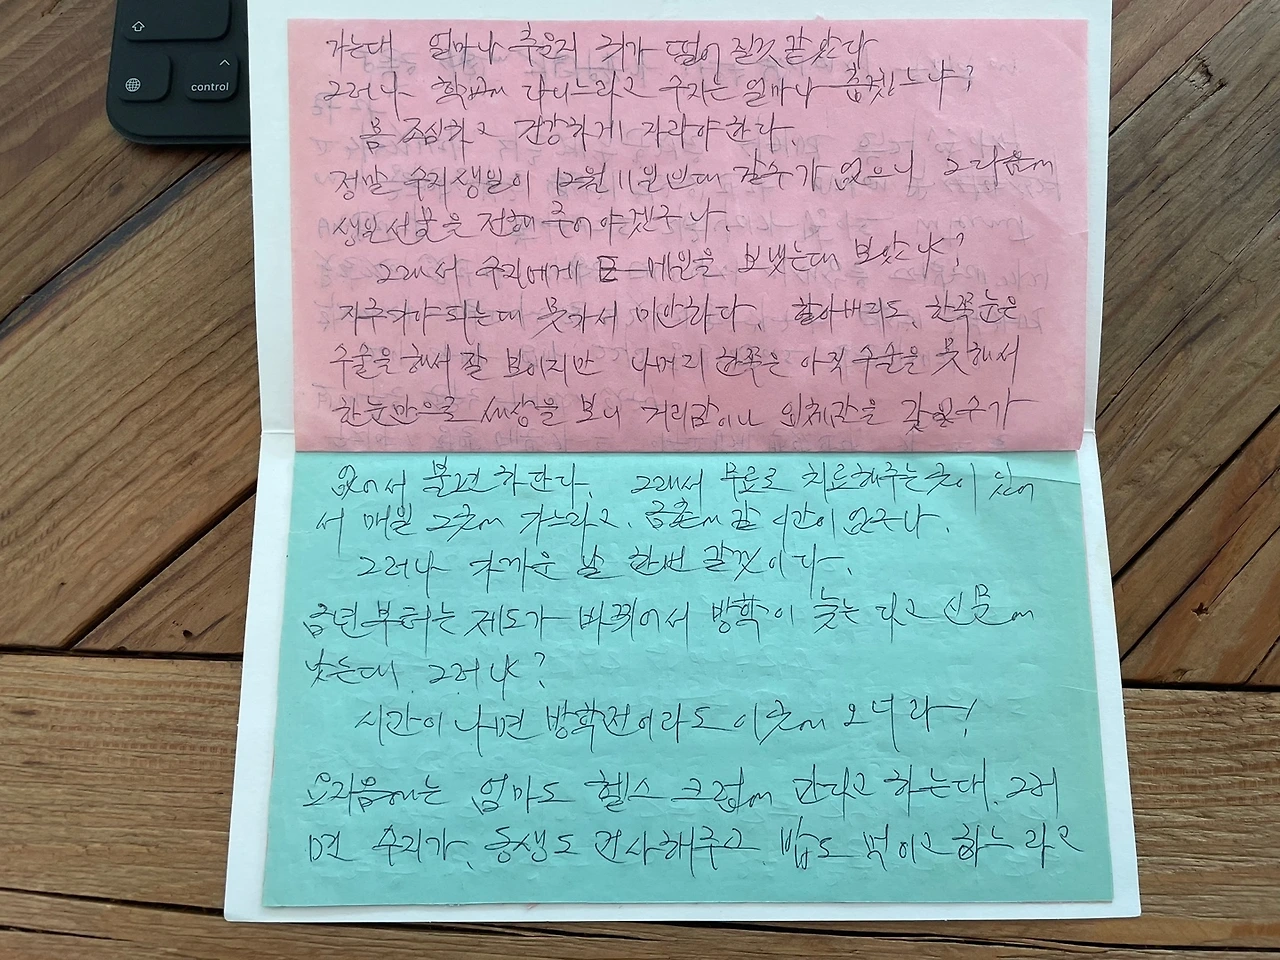 control
가는대 얼마나 추운지 귀가 떨어 질것 같았다
그러나 학교에 다니느라고 수지는 얼마나 춥겠느냐?
몸 조심하고 건강하게 자라야 한다.
정말 수지 생일이 12월 11일 인대 갈수가 없으니 그 다음에
생일 선물을 전해 주어야겠구나.
그래서 수지에게 메일을 보냈는대 보았나?
자주가야 되는대 못가서 미안하다. 할아버지도, 한쪽눈은
수술을 해서 잘 보이지만 나머지 한쪽은 아직 수술을 못해서
한눈만으로 세상을 보니 거리감이나 입체감을 갖을수가
없어서 불편하다. 그래서 무료로 치료해주는 곳이 있어
서 매일 그곳에 가느라고, 금촌에 갈 시간이 없구나.
그러나 가까운 날 한번 갈것이다.
금년부터는 제도가 바뀌어서 방학이 늦는다고 신문에
났는대 그러냐?
시간이 나면 방학전이라도 이곳에 오너라!
요지음에는 엄마도 헬스 크럽에 간다고 하는대, 그러
면 수지가, 동생도 건사해주고, 밥도 먹이고 하느라고